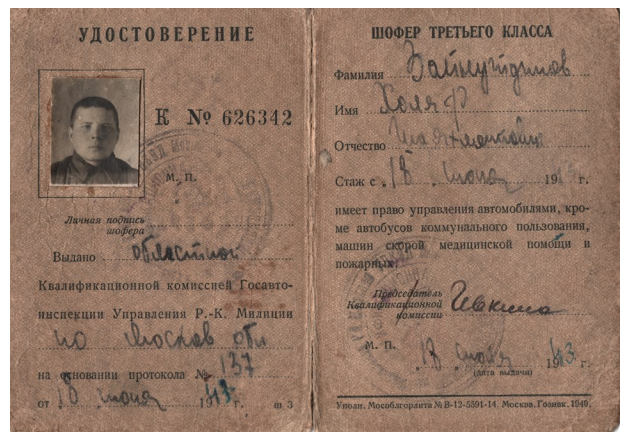 УДОСТОВЕРЕНИЕ
К № 626342
М. П.
Личная подпись
шофера
Выдано областной
Квалификационной комиссией Госавто-
инспекции Управления Р.-К. Милиции
по Москов обл
на основании протокола № 137
от 18 июня 19 г. ш 3
ШОФЕР ТРЕТЬЕГО КЛАССА
Фамилия
Имя
Отчество
Стаж с 18 июня 19 г.
имеет право управления автомобилями, кро-
ме автобусов коммунального пользования,
машин скорой медицинской помощи и
пожарных.
Председатель
Квалификационной
комиссии
М. П. 18 19 3
(дата выдачи)
Уполн. Мособлгорлита № В-12-5591-14. Москов. Гознак. 1940.